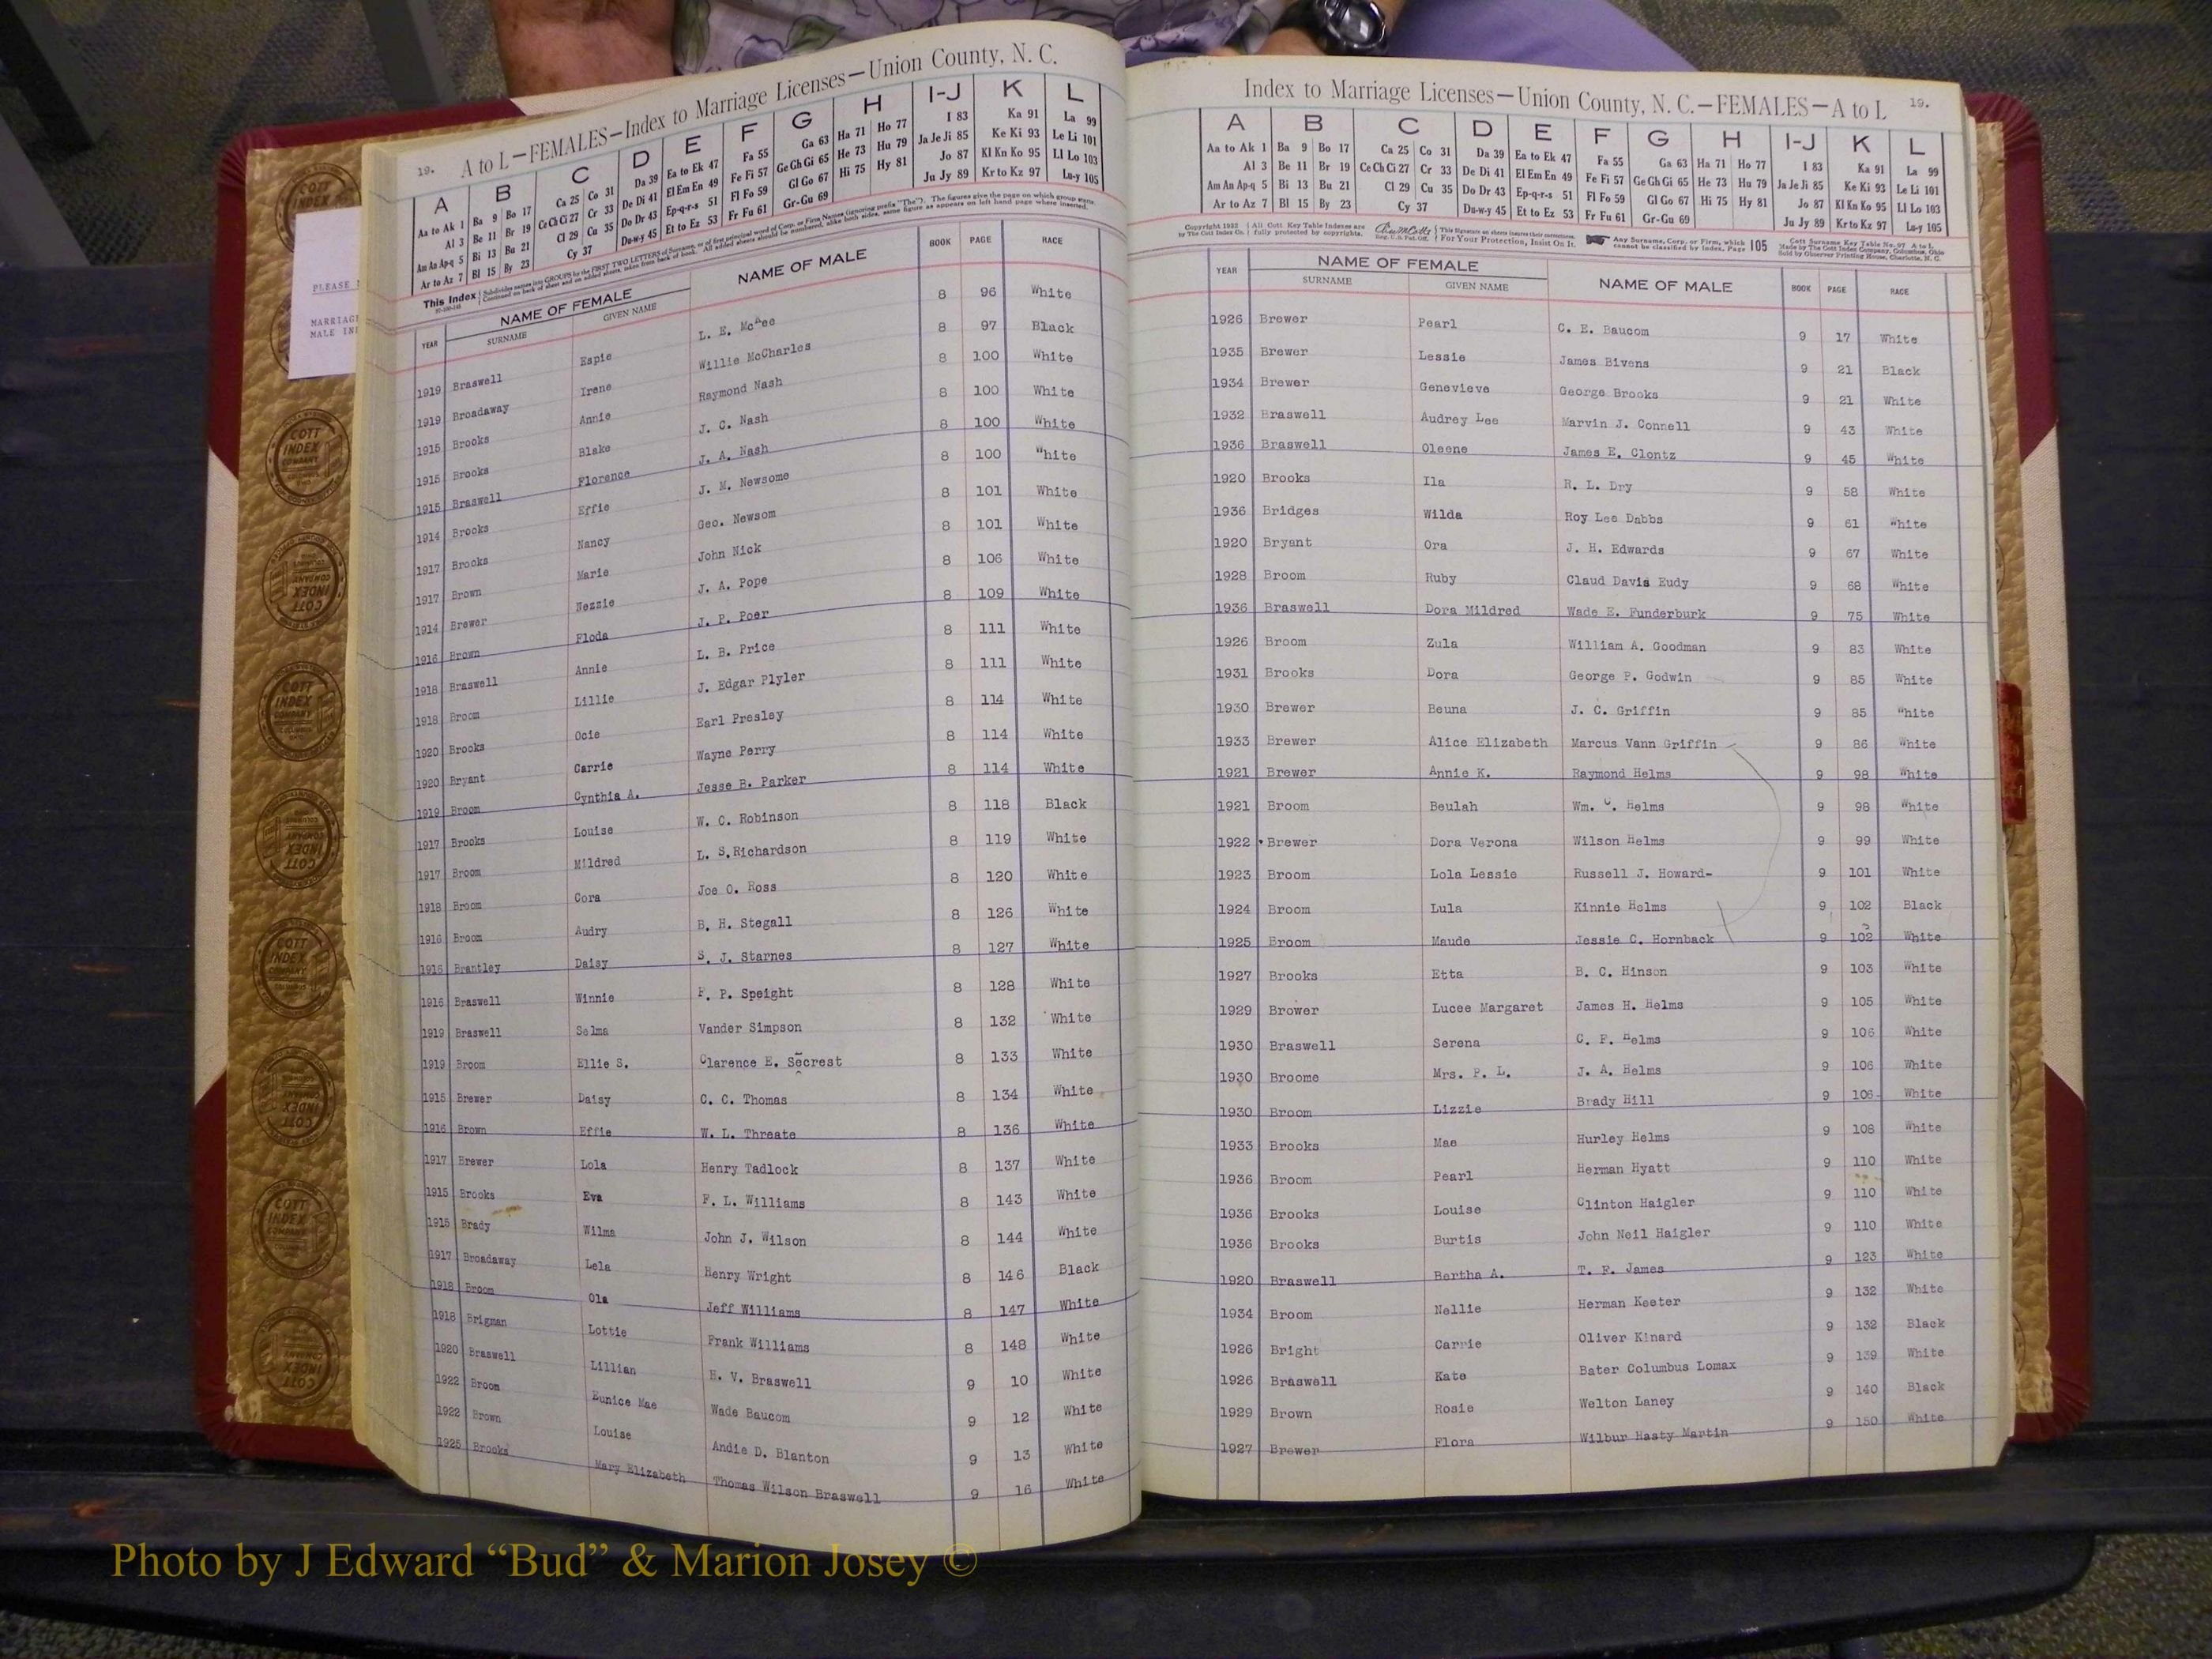 PLEASE
MARRIAGE
MALE IN
19. A to L—FEMALES—Index to Marriage Licenses—Union County, N. C.
A B C D E F G H I-J K L
Aa to Ak 1 Ba 9 Bo 17 Ca 25 Co 31 Da 39 Ea to Ek 47 Fa 55 Ga 63 Ha 71 Ho 77 I 83 Ka 91 La 99
Al 3 Be 11 Br 19 Ce Ch Ci 27 Cr 33 De Di 41 El Em En 49 Fe Fi 57 Ge Gh Gi 65 He 73 Hu 79 Ja Je Ji 85 Ke Ki 93 Le Li 101
Am An Ap-q 5 Bi 13 Bu 21 Cl 29 Cu 35 Do Dr 43 Ep-q-r-s 51 Fl Fo 59 Gl Go 67 Hi 75 Hy 81 Jo 87 Kl Kn Ko 95 Ll Lo 103
Ar to Az 7 Bl 15 By 23 Cy 37 Du-w-y 45 Et to Ez 53 Fr Fu 61 Gr-Gu 69 Ju Jy 89 Kr to Kz 97 Lu-y 105
This Index Subdivides names into GROUPS by the FIRST TWO LETTERS of Surname, or of first principal word of Corp. or Firm Names (ignoring prefix "The"). The figures give the page on which group starts.
Continued on back of sheet and on added sheets, taken from back of book. All added sheets should be numbered, alike both sides, same figure as appears on left hand page where inserted.
YEAR NAME OF FEMALE NAME OF MALE BOOK PAGE RACE
SURNAME GIVEN NAME
1919 Braswell Espie L. E. 8 96 White
1919 Broadaway Irene Willie McCharles 8 97 Black
1915 Brooks Annie Raymond Nash 8 100 White
1915 Brooks Blake J. C. Nash 8 100 White
1915 Braswell Florence J. A. Nash 8 100 White
1914 Brooks Effie J. M. Newsome 8 100 White
1917 Brooks Nancy Geo. Newsom 8 101 White
1917 Brown Marie John Nick 8 101 White
1914 Brewer Nezzie J. A. Pope 8 106 White
1916 Brown Floda J. P. Poer 8 109 White
1918 Braswell Annie L. B. Price 8 111 White
1918 Broom Lillie J. Edgar Plyler 8 111 White
1920 Brooks Ocie Earl Presley 8 114 White
1920 Bryant Carrie Wayne Perry 8 114 White
1919 Broom Cynthia A. Jesse B. Parker 8 114 White
1917 Brooks Louise W. C. Robinson 8 118 Black
1917 Broom Mildred L. S. Richardson 8 119 White
1918 Broom Cora Joe O. Ross 8 120 White
1916 Broom Audry B. H. Stegall 8 126 White
1915 Brantley Daisy S. J. Starnes 8 127 White
1916 Braswell Winnie F. P. Speight 8 128 White
1919 Braswell Selma Vander Simpson 8 132 White
1919 Broom Ellie S. Clarence E. Secrest 8 133 White
1915 Brewer Daisy C. C. Thomas 8 134 White
1916 Brown Effie W. L. Threate 8 136 White
1917 Brewer Lola Henry Tadlock 8 137 White
1915 Brooks Eva F. L. Williams 8 143 White
1915 Brady Wilma John J. Wilson 8 144 White
1917 Broadaway Lela Henry Wright 8 146 Black
1918 Broom Ola Jeff Williams 8 147 White
1918 Brigman Lottie Frank Williams 8 148 White
1920 Braswell Lillian H. V. Braswell 9 10 White
1922 Broom Eunice Mae Wade Baucom 9 12 White
1922 Brown Louise Andie D. Blanton 9 13 White
1925 Brooks Mary Elizabeth Thomas Wilson Braswell 9 16 White
Index to Marriage Licenses—Union County, N. C.—FEMALES—A to L 19.
A B C D E F G H I-J K L
Aa to Ak 1 Ba 9 Bo 17 Ca 25 Co 31 Da 39 Ea to Ek 47 Fa 55 Ga 63 Ha 71 Ho 77 I 83 Ka 91 La 99
Al 3 Be 11 Br 19 Ce Ch Ci 27 Cr 33 De Di 41 El Em En 49 Fe Fi 57 Ge Gh Gi 65 He 73 Hu 79 Ja Je Ji 85 Ke Ki 93 Le Li 101
Am An Ap-q 5 Bi 13 Bu 21 Cl 29 Cu 35 Do Dr 43 Ep-q-r-s 51 Fl Fo 59 Gl Go 67 Hi 75 Hy 81 Jo 87 Kl Kn Ko 95 Ll Lo 103
Ar to Az 7 Bl 15 By 23 Cy 37 Du-w-y 45 Et to Ez 53 Fr Fu 61 Gr-Gu 69 Ju Jy 89 Kr to Kz 97 Lu-y 105
Copyright 1932 by The Cott Index Co. All Cott Key Table Indexes are fully protected by copyrights. Reg. U.S. Pat. Off. This Signature on sheets insures their correctness. For Your Protection, Insist On It. Any Surname, Corp. or Firm, which cannot be classified by Index, Page 105 Cott Surname Key Table No. 97 A to L. Made by The Cott Index Company, Columbus, Ohio Sold by Observer Printing House, Charlotte, N. C.
YEAR NAME OF FEMALE NAME OF MALE BOOK PAGE RACE
SURNAME GIVEN NAME
1926 Brewer Pearl C. E. Baucom 9 17 White
1935 Brewer Lessie James Bivens 9 21 Black
1934 Brewer Genevieve George Brooks 9 21 White
1932 Braswell Audrey Lee Marvin J. Connell 9 43 White
1936 Braswell Oleene James E. Clontz 9 45 White
1920 Brooks Ila R. L. Dry 9 58 White
1936 Bridges Wilda Roy Lee Dabbs 9 61 White
1920 Bryant Ora J. H. Edwards 9 67 White
1928 Broom Ruby Claud Davis Eudy 9 68 White
1936 Braswell Dora Mildred Wade E. Funderburk 9 75 White
1926 Broom Zula William A. Goodman 9 83 White
1931 Brooks Dora George P. Godwin 9 85 White
1930 Brewer Beuna J. C. Griffin 9 85 White
1933 Brewer Alice Elizabeth Marcus Vann Griffin 9 86 White
1921 Brewer Annie K. Raymond Helms 9 98 White
1921 Broom Beulah Wm. C. Helms 9 98 White
1922 Brewer Dora Verona Wilson Helms 9 99 White
1923 Broom Lola Lessie Russell J. Howard- 9 101 White
1924 Broom Lula Kinnie Helms 9 102 Black
1925 Broom Maude Jessie C. Hornback 9 102 White
1927 Brooks Etta B. C. Hinson 9 103 White
1929 Brower Lucee Margaret James H. Helms 9 105 White
1930 Braswell Serena C. F. Helms 9 106 White
1930 Broome Mrs. P. L. J. A. Helms 9 106 White
1930 Broom Lizzie Brady Hill 9 106 White
1933 Brooks Mae Hurley Helms 9 108 White
1936 Broom Pearl Herman Hyatt 9 110 White
1936 Brooks Louise Clinton Haigler 9 110 White
1936 Brooks Burtis John Neil Haigler 9 110 White
1920 Braswell Bertha A. T. F. James 9 123 White
1934 Broom Nellie Herman Keeter 9 132 White
1926 Bright Carrie Oliver Kinard 9 132 Black
1926 Braswell Kate Bater Columbus Lomax 9 139 White
1929 Brown Rosie Welton Laney 9 140 Black
1927 Brewer Flora Wilbur Hasty Martin 9 150 White
COTT INDEX COMPANY
Photo by J Edward “Bud” & Marion Josey ©